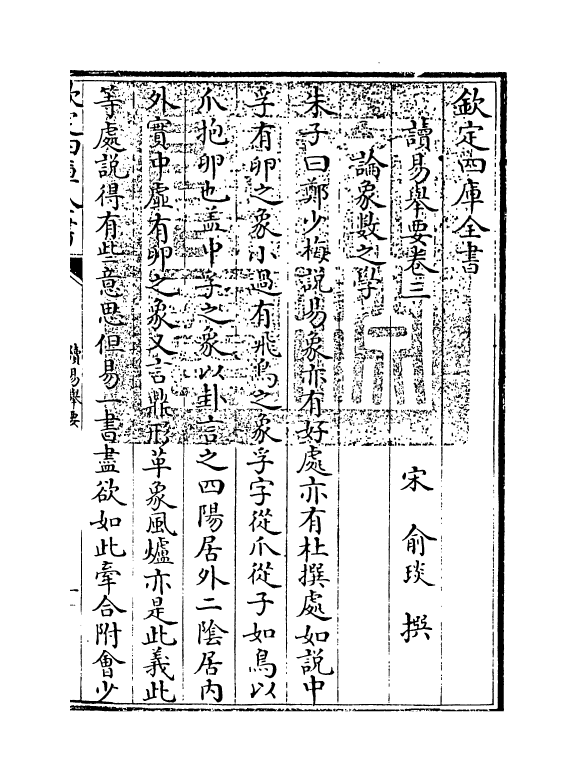 欽定四庫全書
讀易舉要卷三
宋 俞琰 撰
論象數之學
朱子曰鄭少梅説易象亦有好處亦有杜撰處如説中
孚有卵之象小過有飛鳥之象孚字從爪從子如鳥以
爪抱卵也盖中孚之象以卦言之四陽居外二陰居内
外實中虛有卵之象又言鼎形革象風爐亦是此義此
等處説得有些意思但易一書盡欲如此牽合附會少
欽定四庫全書
讀易舉要
一